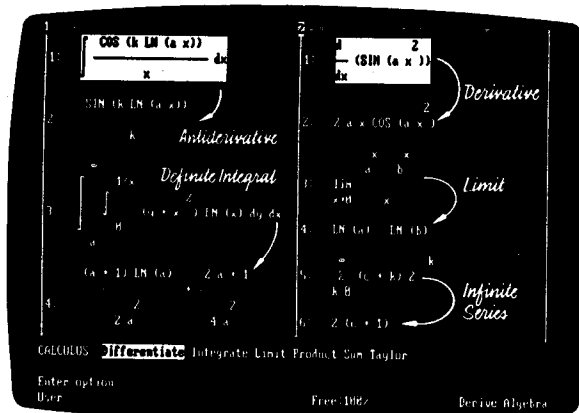 1
1: COS (k LN (a x))
∫ dx
x
SIN (k LN (a x))
k
Antiderivative
Definite Integral
∞ 1/x
3: ∫ ∫ (y + x²) LN (x) dy dx
a 0
(a + 1) LN (a) + 2 a + 1
4:
2 a² 4 a²
2
1: d/dx (SIN (a x²))
Derivative
2: 2 a x COS (a x²)
3: lim
a^x b^x
x→0 x
Limit
4: LN (a) LN (b)
5: ∞ (c + k) 2^k
k 0
Infinite
Series
6: 2 (c + 1)
CALCULUS: Differentiate Integrate Limit Product Sum Taylor
Enter option
User Free:100% Derive Algebra